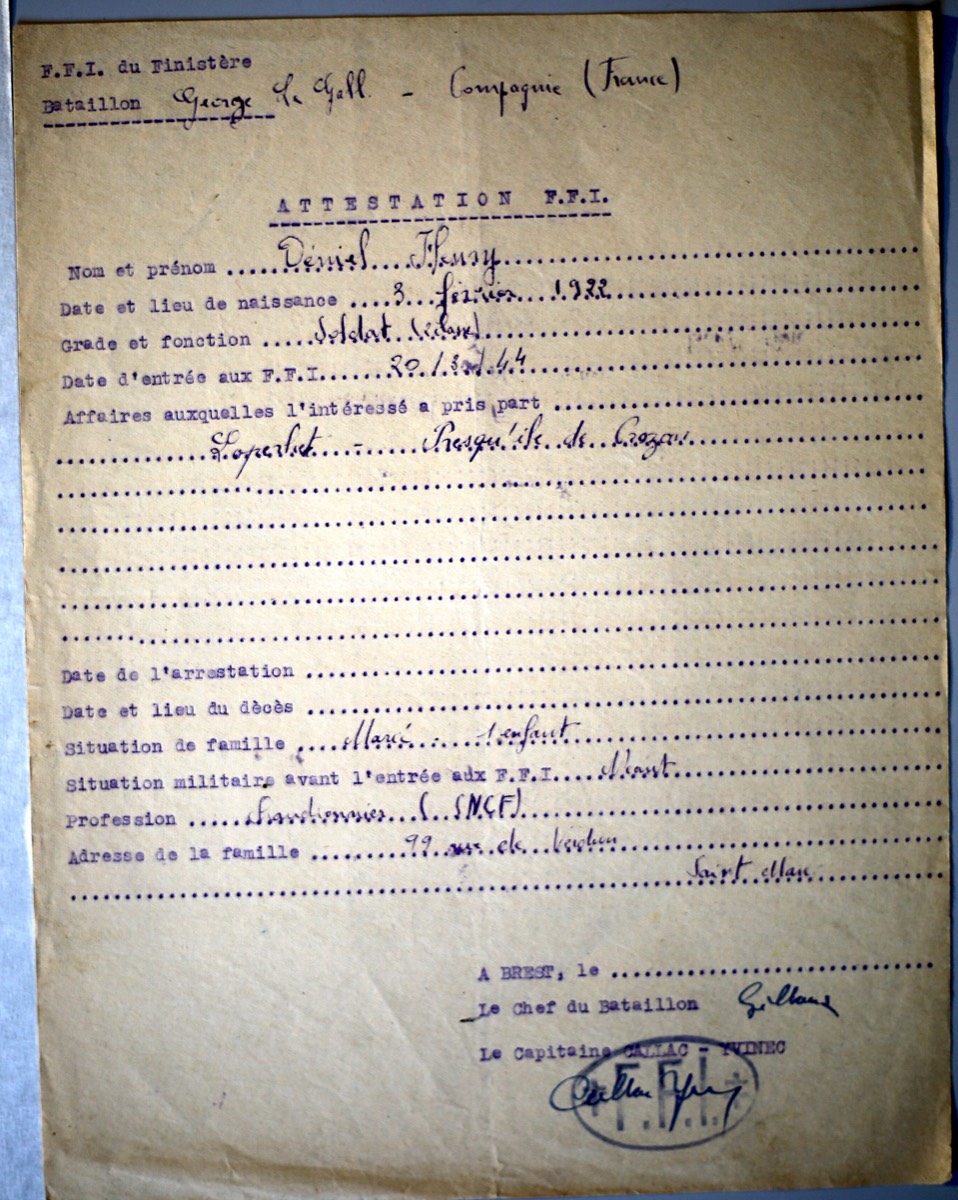 F.F.I. du Finistère
Bataillon George Le Gall - Compagnie (France)
ATTESTATION F.F.I.
Nom et prénom Déniel
Date et lieu de naissance 3 février 1922
Grade et fonction Soldat
Date d'entrée aux F.F.I. 20/3/44
Affaires auxquelles l'intéressé a pris part
Loperhet - Presqu'île de Crozon
Date de l'arrestation
Date et lieu du décès
Situation de famille Marié - 1 enfant
Situation militaire avant l'entrée aux F.F.I. Néant
Profession (SNCF)
Adresse de la famille 99 rue de Verdun
Saint Marc
A BREST, le
Le Chef du Bataillon
Le Capitaine CALLAC - YVINEC
F.F.I.